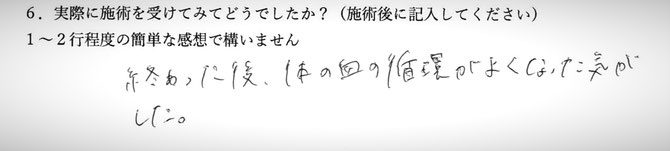 ６．実際に施術を受けてみてどうでしたか？（施術後に記入してください）
１～２行程度の簡単な感想で構いません
終わった後、体の血の循環がよくなった気が
した。